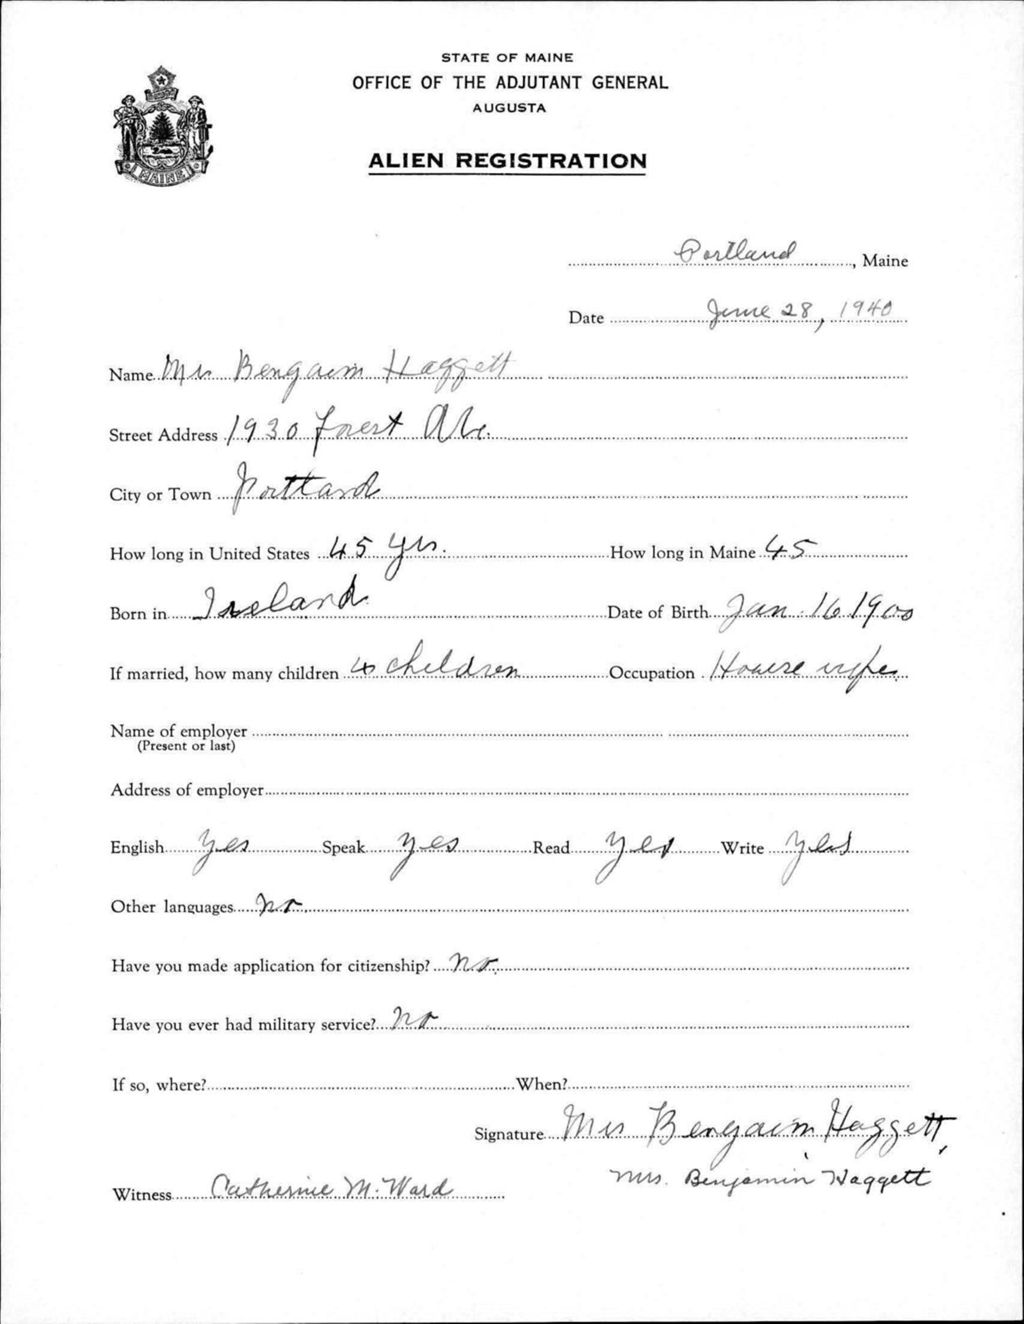 STATE OF MAINE
OFFICE OF THE ADJUTANT GENERAL
AUGUSTA
ALIEN REGISTRATION
MAINE
Portland, Maine
Date June 28, 1940
Name Mrs Bengaim Haggett
Street Address 1930 Forest Ave.
City or Town Portland
How long in United States 45 yrs. How long in Maine 45
Born in Ireland Date of Birth Jan. 16 1900
If married, how many children 4 children Occupation House wife
Name of employer
(Present or last)
Address of employer
English Yes Speak Yes Read Yes Write Yes
Other languages no.
Have you made application for citizenship? No.
Have you ever had military service? No
If so, where? When?
Signature Mrs Bengaim Haggett,
Mrs. Benjamin Haggett
Witness Catherine M. Ward